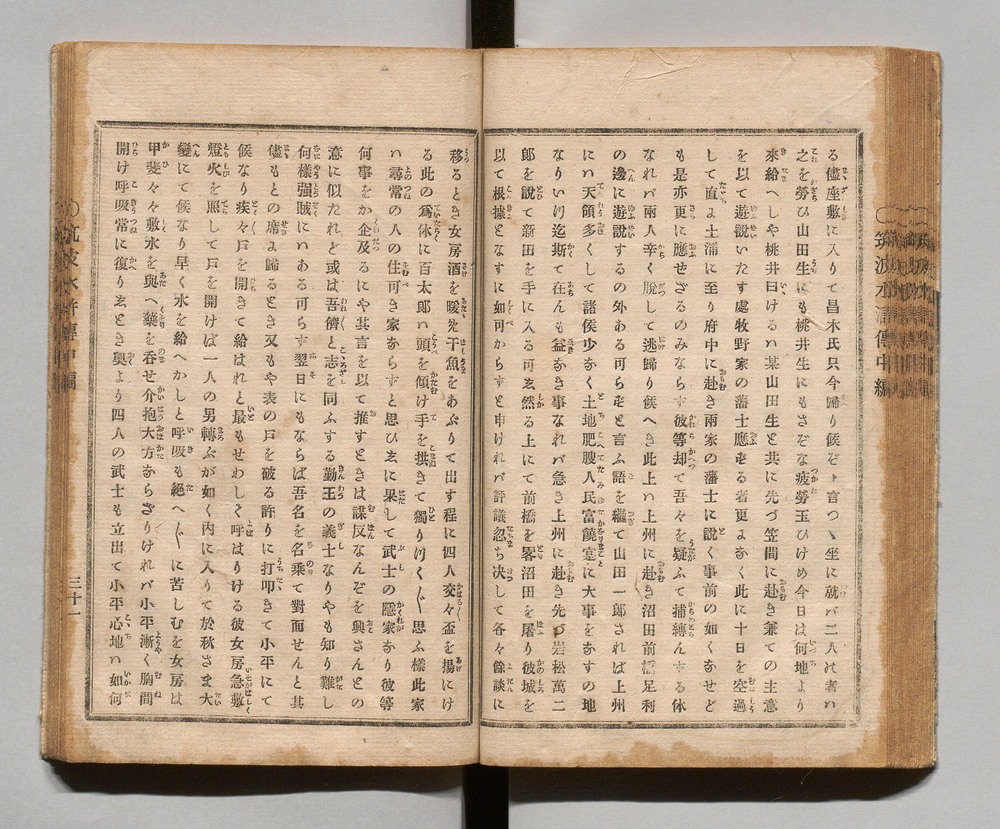 る儘座敷に入りて昌木氏只今歸り候ぞと言つヽ坐に就バ二人の者ハ
之を勞ひ山田生にも桃井生にもさぞな疲勞玉ひけめ今日は何地より
來給へしや桃井曰けるハ某山田生と共に先づ笠間に赴き兼ての主意
を以て遊説いたす處牧野家の藩士應ずる者更になく此に十日を空過
して直に土浦に至り府中に赴き兩家の藩士に説く事前の如くなせど
も是亦更に應せざるのみならず彼等却て吾々を疑ふて捕縛んする休
なれバ兩人辛く脱して逃歸り候へき此上ハ上州に赴き沼田前橋足利
の邊に遊説するの外ある可らずと言ふ語を繼て山田一郎されば上州
にハ天領多くして諸侯少なく土地肥腴人民富饒實に大事をなすの地
なりいけ迄斯て在んも益なき事なれバ急き上州に赴き先づ岩松萬二
郎を説て新田を手に入る可ゑ然る上にて前橋を畧沼田を屠り彼城を
以て根據となすに如可からずと申けれバ評議忽ち決して各々餘談に
移るとき女房酒を暖め干魚をあぶりて出す程に四人交々盃を揚にけ
る此の爲休に百太郎ハ頭を傾け手を拱きて獨りつく〴〵思ふ樣此家
ハ尋常の人の住可き家ならずと思ひゑに果して武士の隱家なり彼等
何事をか企及るにや其言を以て推すときは謀反なんぞを興さんとの
意に似たれど或は吾儕と志を同ふする勤王の義士なりやも知り難し
何樣強賊にハある可らず翌日にもならば吾名を名乘て對面せんと其
儘もとの席に歸るとき又もや表の戸を破る許りに打叩きて小平にて
候なり疾々戸を開きて給はれと最もせわしく呼はりける彼女房急敷
燈火を照して戸を開けば一人の男轉ぶが如く内に入りて於秋さま大
變にて候なり早く水を給へかしと呼吸も絕へ〴〵に苦しむを女房は
甲斐々々敷水を與へ藥を呑せ介抱大方ならざりけれバ小平漸く胸間
開け呼吸常に復りゑとき奧より四人の武士も立出て小平心地ハ如何
筑波水滸傳中編
三十一